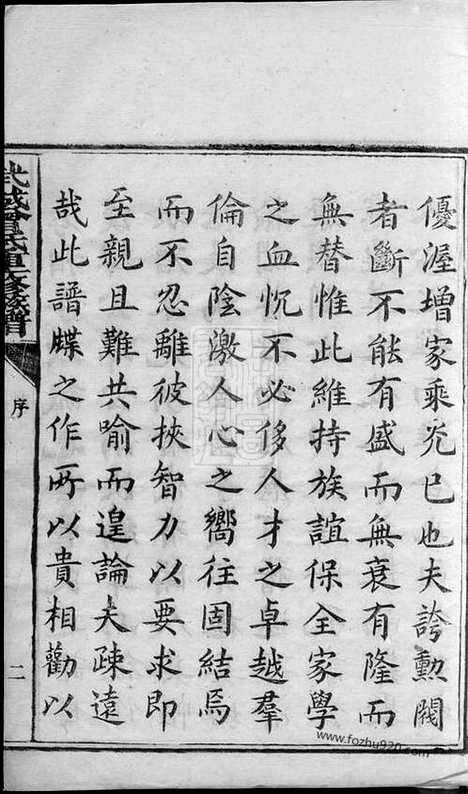 優渥增家乘光已也夫誇勳閥
者斷不能有盛而無衰有隆而
無替惟此維持族誼保全家學
之血忱不必侈人才之卓越羣
倫自陰激人心之嚮往固結焉
而不忍離彼挾智力以要求即
至親且難共喻而遑論夫疎遠
哉此譜牒之作所以貴相勸以
武城曾氏重修族譜
序
二
www.fozhu920.com